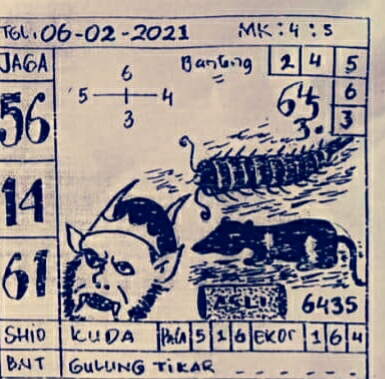 TGL: 06-02-2021 MK: 4 : 5
JAGA
56
14
61
6
5 4
3
Banteng 2 4 5
6
3
645
3.
ASLI 6435
SHIO KUDA 5 1 6 EKOr 1 6 4
B.NT GULUNG TIKAR - - - - - -